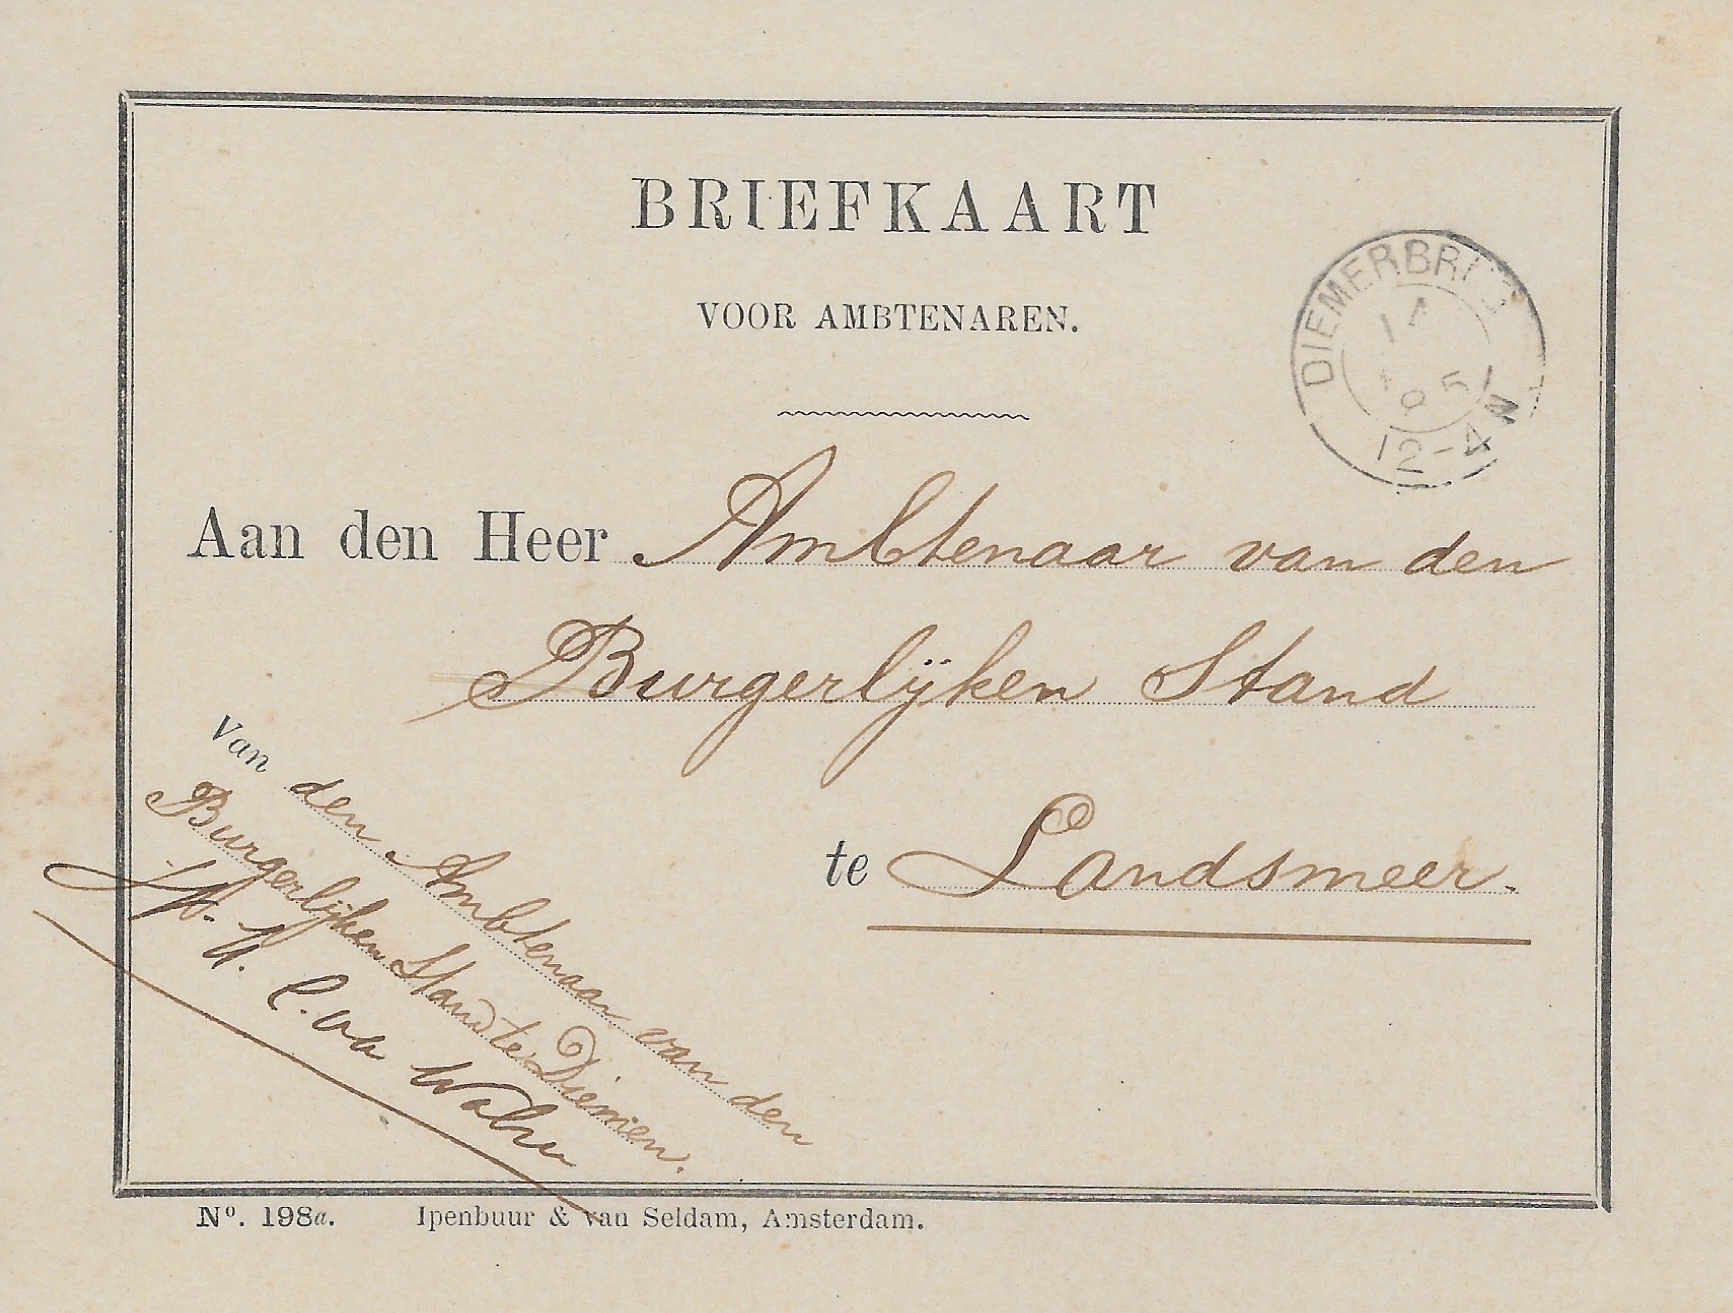 BRIEFKAART
VOOR AMBTENAREN.
DIEMERBRUG
12-4 N
Aan den Heer Ambtenaar van den
Burgerlijken Stand
te Landsmeer.
Van den Ambtenaar van den
Burgerlijken Stand te Diemen.
Nº. 198a. Ipenbuur & van Seldam, Amsterdam.